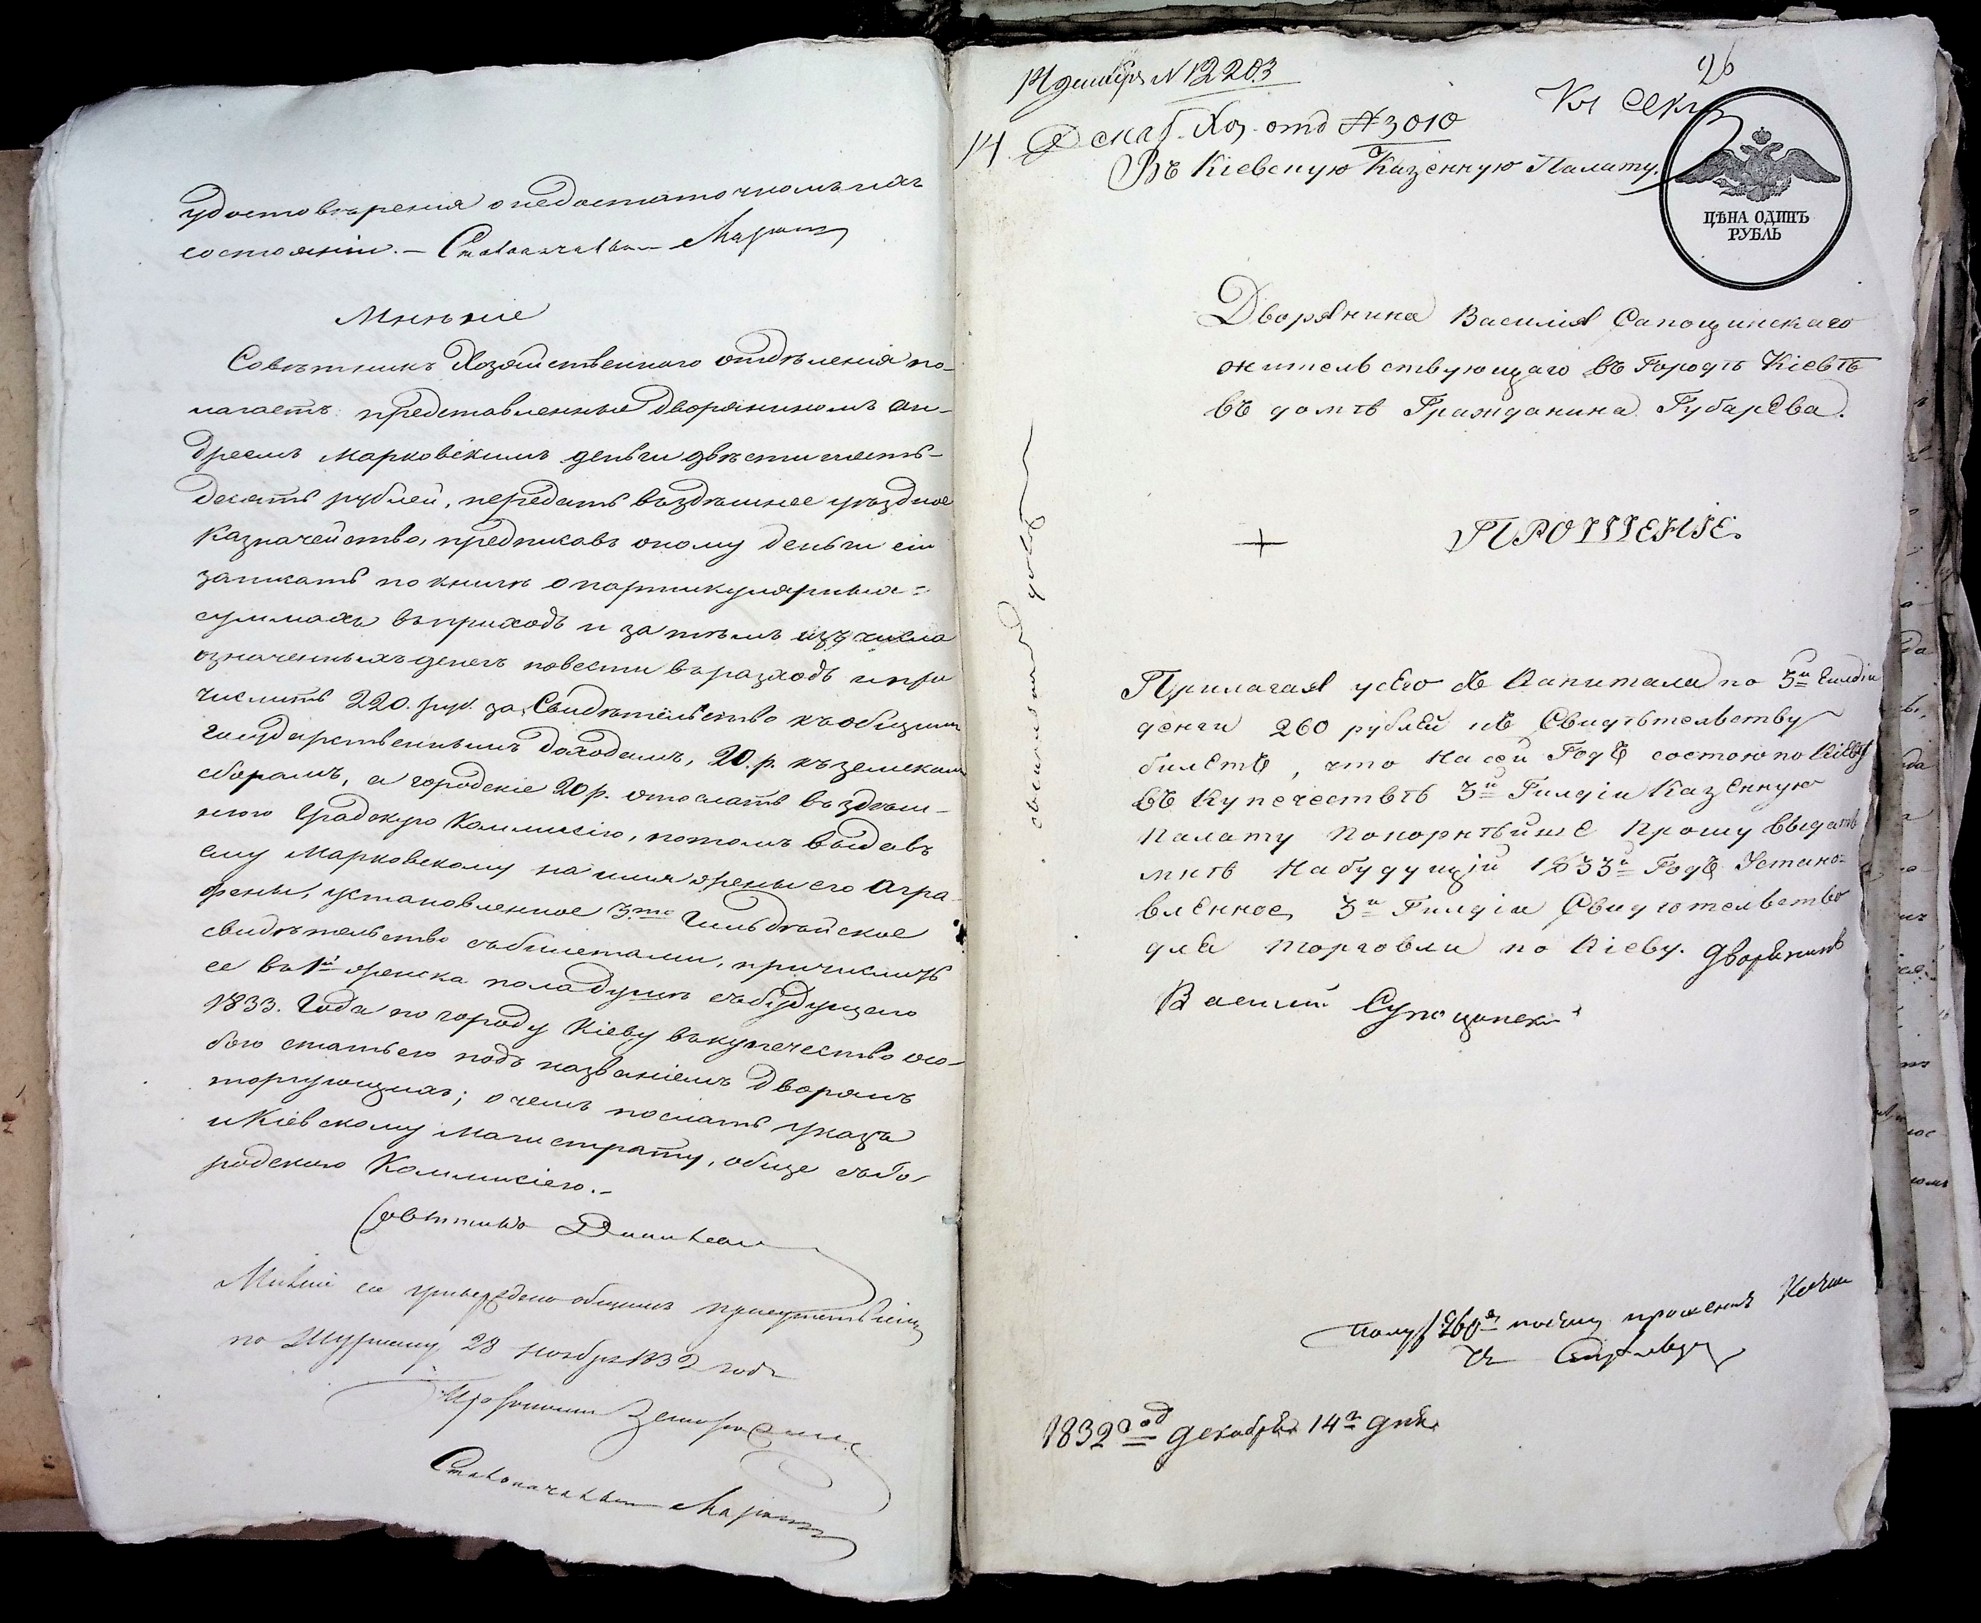 удостовѣренія о недостаточномъ ихъ
состояніи. – Столоначальн
Мнѣніе
Совѣтникъ Хозяйственнаго отдѣленія по-
лагаетъ: представленные дворяниномъ Ан-
дреемъ Марковскимъ деньги двѣсти шесть-
десятъ рублей, передать въ здѣшнее уѣздное
Казначейство, предписавъ оному деньги сіи
записать по книгѣ о партикулярныхъ
суммахъ въ приходъ и за тѣмъ изъ числа
означенныхъ денегъ повести въ расходъ и при
числить 220. руб. за Свидѣтельство къ общимъ
государственнымъ доходамъ, 20. р. къ земскимъ
сборамъ, а городскіе 20 р. отослать въ здѣш-
нюю Градскую Коммисію, потомъ выдавъ
ему Марковскому на имя жены его Агра-
фены, установленное 3.го Гильдѣйское
свидѣтельство съ билетами, причислить
ее въ 1й женска пола душѣ съ будущего
1833. Года по городу Кіеву въ купечество осо-
бою статьею подъ названіемъ Дворянъ
торгующихъ; о чемъ послать указъ
и Кіевскому Магистрату, обще съ Го-
родскою Коммисіею.–
Совѣтникъ
Мнѣніе сіе утверждено общимъ присутствіемъ
по Журналу 28 Ноября 1832 года
Столоначальн
14 декабря N 12203
96
14 Декаб. Хоз. отд № 3010
Въ Кіевскую Казенную Палату.
ЦѢНА ОДИНЪ
РУБЛЬ
Дворянина Василія Сапощинскаго
жительствующаго въ Городѣ Кіевѣ
въ домѣ Гражданина Губарева.
ПРОШЕНІЕ.
Прилагая усего съ Капитала по 3й Гилдіи
денги 260 рублей и Свидѣтельству
билетъ, что на сей Годъ состою по Кіеву
въ Купечествѣ 3й Гилдіи Казенную
Палату Покорнѣйше Прошу выдать
мнѣ На будущій 1833й Годъ Устано-
вленное 3й Гилдіи Свидѣтельство
для торговли по Кіеву. Дворянинъ
Василий Супощинск
260 по сему прошенію
1832 год декабря 14го дня